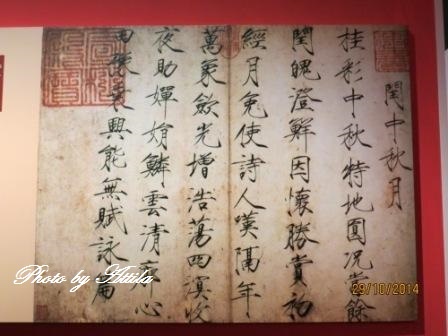 閏中秋月
桂彩中秋特地圓况當餘
閏魄澄鮮因懷勝賞初
經月免使詩人嘆隔年
萬象斂光增浩蕩四溟收
夜助嬋娟鱗雲清廓心
田豫乘興能無賦詠篇
Photo by Attila
29/10/2014